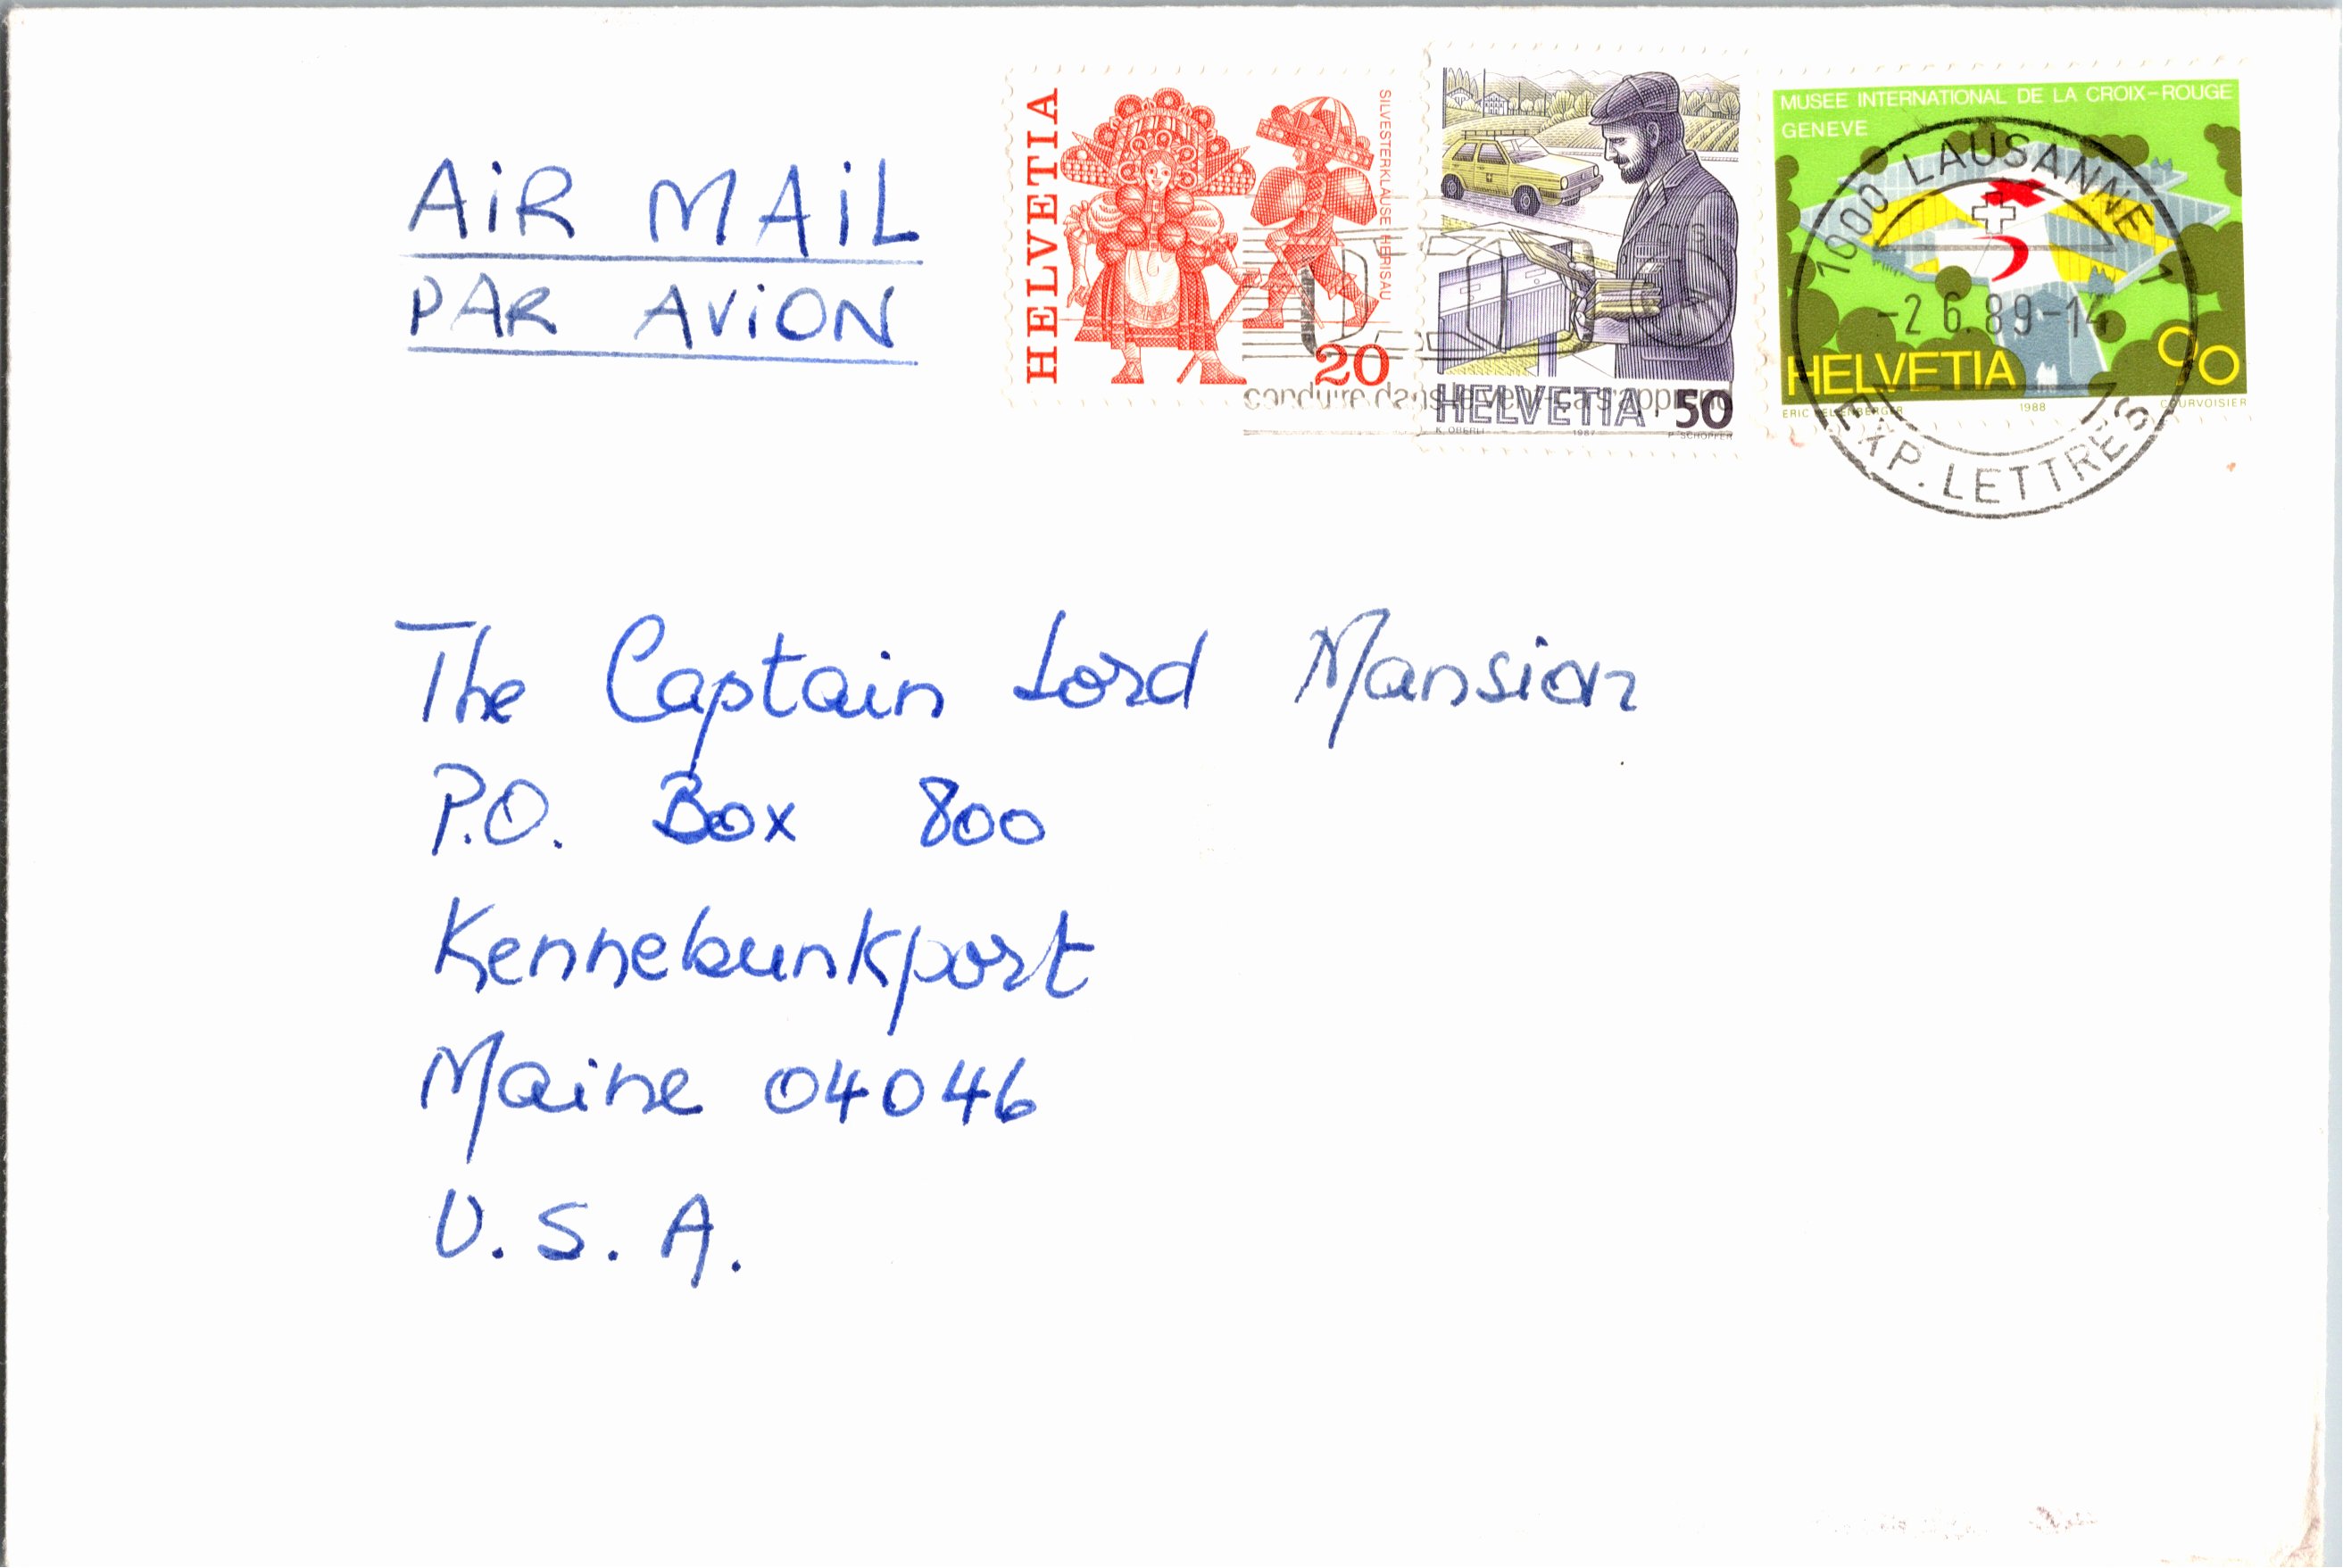 AiR MAiL
PAR AViON
HELVETIA
SILVESTERKLÄUSE HERISAU
20
HELVETIA 50
K. OBERLI 1987 P. SCHOPFER
MUSEE INTERNATIONAL DE LA CROIX-ROUGE
GENEVE
HELVETIA 90
ERIC KELLENBERGER 1988 COURVOISIER
1000 LAUSANNE 1
-2 6.89-14
EXP. LETTRES
conduire dans le vent
The Captain Lord Mansion
P.O. Box 800
Kennebunkport
Maine 04046
U.S.A.